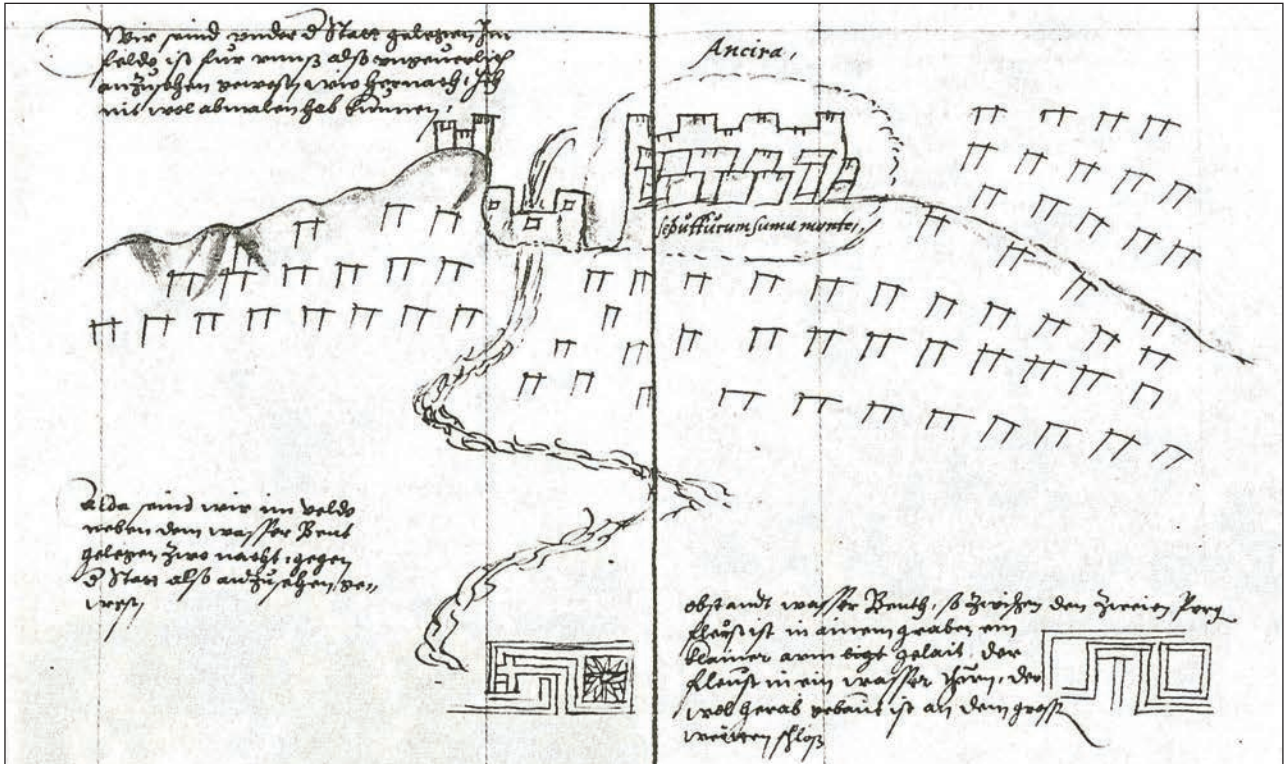 Wir seind under d Statt gelegen Im
felde ist fur unnß alß ungeuerlich
anzusehen gewesen wie hernach, Ich
mit wol abmalen hab kunnen,
Ancira,
sepulturum suma monte,
Alda seind wir im velde
neben dem wasser Bent
gelegen zwo nacht, gegen
d Statt alß anzusehen ge-
wesen
obstandt wasser Benth, so zwischen den zweien Perg
fleust ist in ainem graben ein
klainer arm gelait, der
fleust in ein wasser thurn, der
wol herab gebaut ist an dem gross
weitten schloß